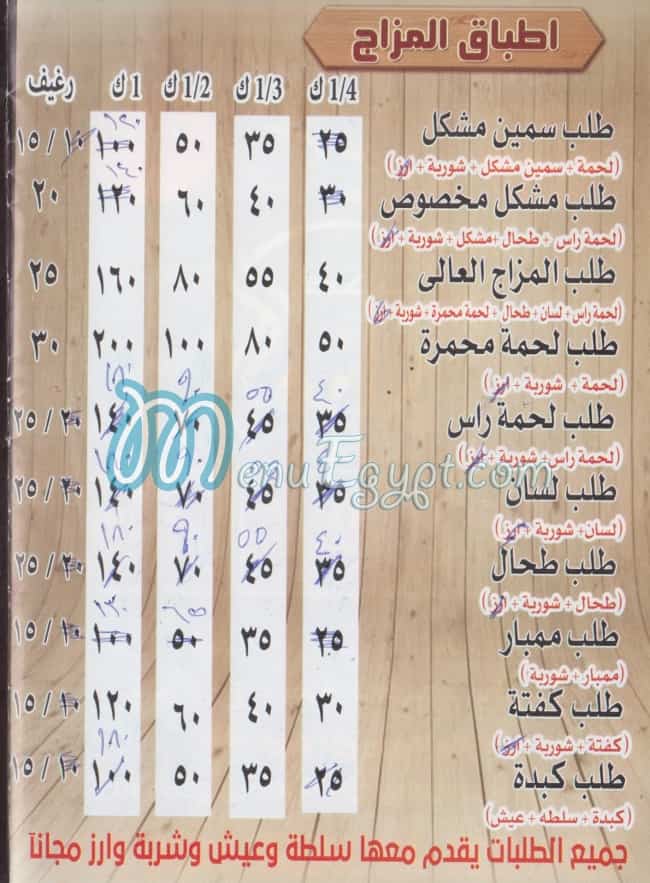 اطباق المزاج
1/4 ك 1/3 ك 1/2 ك 1 ك رغيف
طلب سمين مشكل ٢٥ ٣٥ ٥٠ ١٠٠ ١٥ / ١٠
١٢٠
(لحمة + سمين مشكل + شوربة + ارز)
طلب مشكل مخصوص ٣٠ ٤٠ ٦٠ ١٢٠ ٢٠
١٤٠
(لحمة راس + طحال +مشكل + شوربة + ارز)
طلب المزاج العالى ٤٠ ٥٥ ٨٠ ١٦٠ ٢٥
(لحمة راس + لسان + طحال + لحمة محمرة + شوربة + ارز)
طلب لحمة محمرة ٥٠ ٨٠ ١٠٠ ٢٠٠ ٣٠
(لحمة + شوربة + ارز)
٤٠ ٥٥ ٩٠ ١٨٠
طلب لحمة راس ٣٥ ٤٥ ٧٠ ١٤٠ ٢٥ / ٢٠
(لحمة راس + شوربة + ارز)
طلب لسان ٣٥ ٤٥ ٧٠ ١٤٠ ٢٥ / ٢٠
(لسان + شوربة + ارز)
٤٠ ٥٥ ٩٠ ١٨٠
طلب طحال ٣٥ ٤٥ ٧٠ ١٤٠ ٢٥ / ٢٠
(طحال + شوربة + ارز)
٦٥ ١٣٠
طلب ممبار ٢٥ ٣٥ ٥٠ ١٠٠ ١٥ / ١٠
(ممبار + شوربة)
طلب كفتة ٣٠ ٤٠ ٦٠ ١٢٠ ١٥ / ١٠
(كفتة + شوربة + ارز)
١٨٠
طلب كبدة ٢٥ ٣٥ ٥٠ ١٠٠ ١٥ / ١٠
(كبدة + سلطه + عيش)
جميع الطلبات يقدم معها سلطة وعيش وشربة وارز مجاناً
MenuEgypt.com